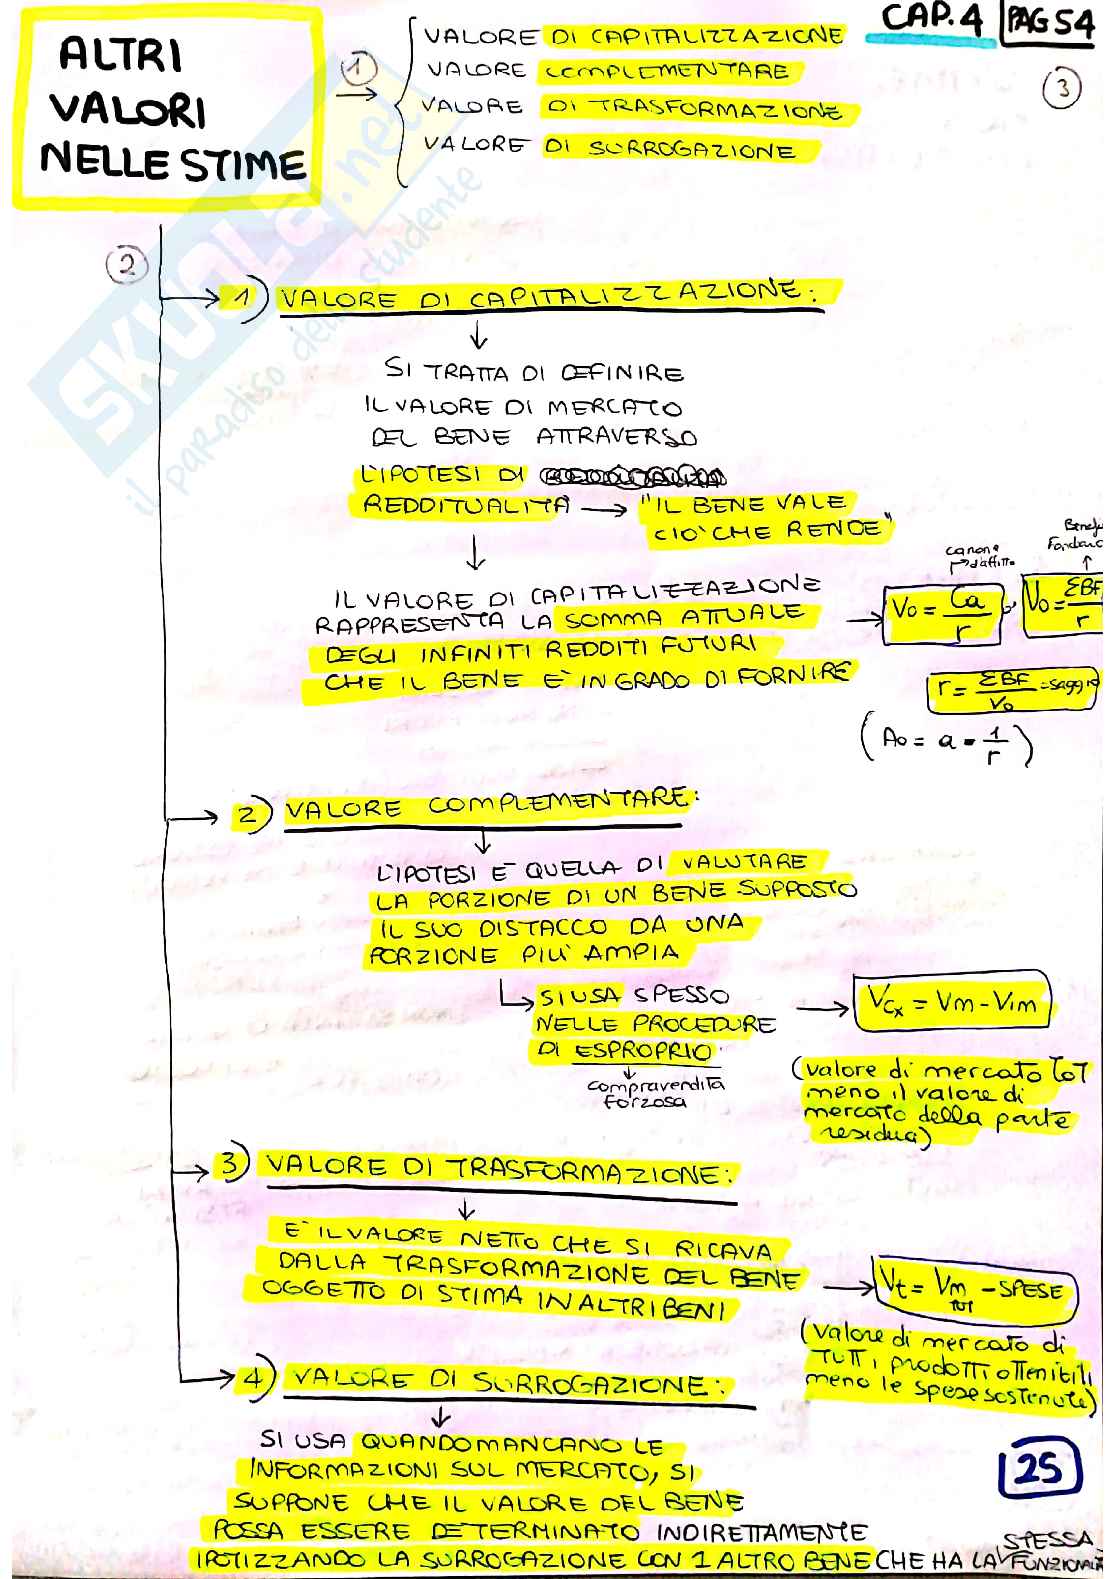 ALTRI
VALORI
NELLE STIME
1
VALORE DI CAPITALIZZAZIONE
VALORE COMPLEMENTARE
VALORE DI TRASFORMAZIONE
VALORE DI SURROGAZIONE
CAP. 4 PAG 54
3
2
1) VALORE DI CAPITALIZZAZIONE:
SI TRATTA DI DEFINIRE
IL VALORE DI MERCATO
DEL BENE ATTRAVERSO
L'IPOTESI DI
REDDITUALITÀ → "IL BENE VALE
CIÒ CHE RENDE"
IL VALORE DI CAPITALIZZAZIONE
RAPPRESENTA LA SOMMA ATTUALE
DEGLI INFINITI REDDITI FUTURI
CHE IL BENE È IN GRADO DI FORNIRE
canone
d'affitto
Vo = Ca/r
Vo = ΣBF/r
r = ΣBF/Vo = saggio
(Ao = a = 1/r)
2) VALORE COMPLEMENTARE:
L'IPOTESI È QUELLA DI VALUTARE
LA PORZIONE DI UN BENE SUPPOSTO
IL SUO DISTACCO DA UNA
PORZIONE PIÙ AMPIA
SI USA SPESSO
NELLE PROCEDURE
DI ESPROPRIO
compravendita
forzosa
Vcx = Vm - Vim
(valore di mercato TOT
meno il valore di
mercato della parte
residua)
3) VALORE DI TRASFORMAZIONE:
È IL VALORE NETTO CHE SI RICAVA
DALLA TRASFORMAZIONE DEL BENE
OGGETTO DI STIMA IN ALTRI BENI
Vt = Vm TOT - SPESE
(valore di mercato di
TUTTI i prodotti ottenibili
meno le spese sostenute)
4) VALORE DI SURROGAZIONE:
SI USA QUANDO MANCANO LE
INFORMAZIONI SUL MERCATO, SI
SUPPONE CHE IL VALORE DEL BENE
POSSA ESSERE DETERMINATO INDIRETTAMENTE
IPOTIZZANDO LA SURROGAZIONE CON 1 ALTRO BENE CHE HA LA STESSA
25
SKUOLA.net
il paradiso dello studente